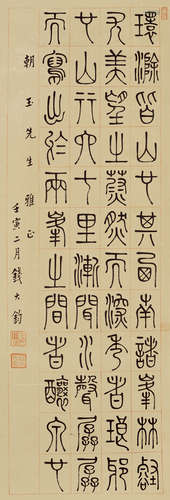 環滁皆山也其西南諸峯林壑
尤美望之蔚然而深秀者琅邪
也山行六七里漸聞水聲潺潺
而寫出於兩峯之間者釀泉也
朝玉先生雅正
壬寅二月錢大鈞